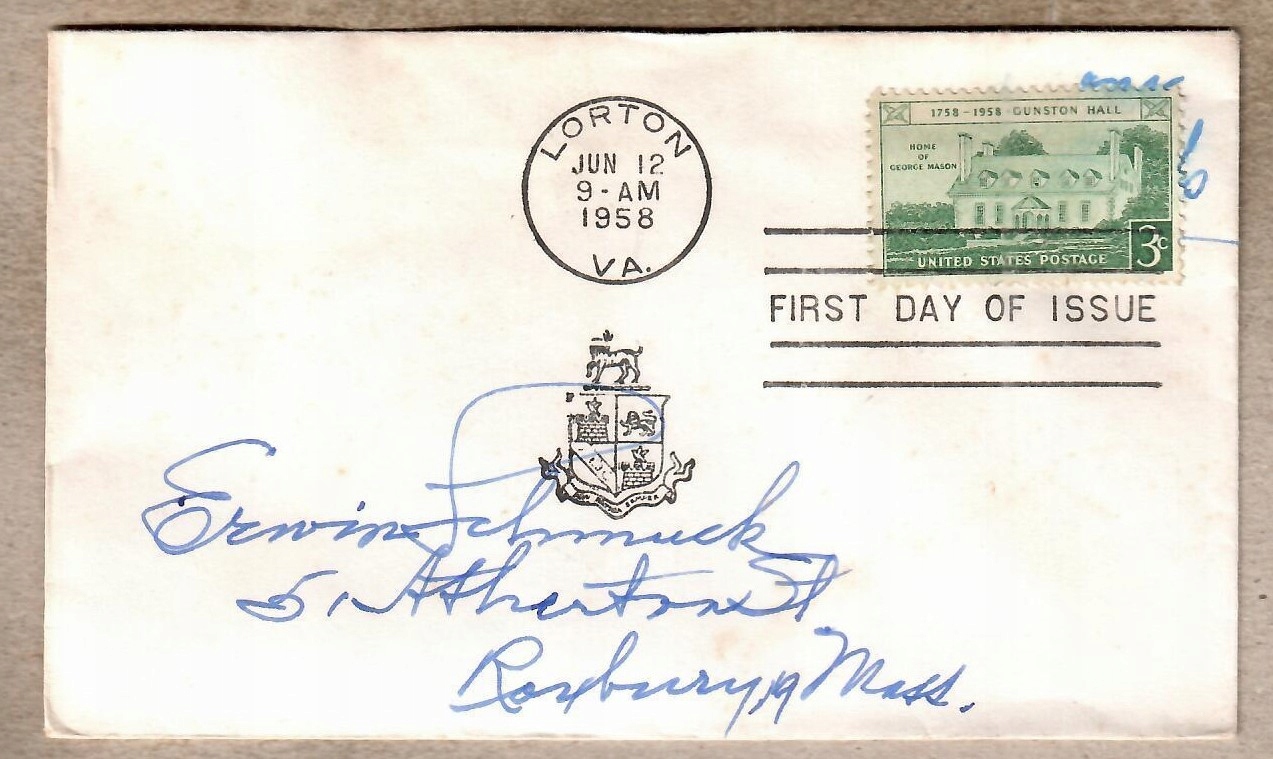 LORTON
JUN 12
9-AM
1958
VA.
1758-1958 GUNSTON HALL
HOME
OF
GEORGE MASON
UNITED STATES POSTAGE
3c
FIRST DAY OF ISSUE
Erwin Schmuck
5, Atherton St
Roxbury, 19 Mass.